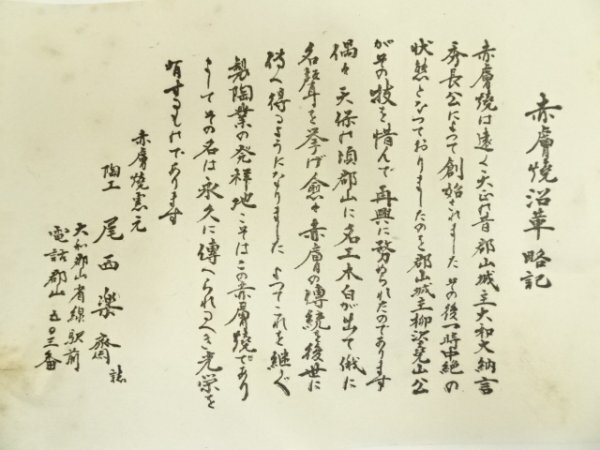 赤膚燒沿革略記
赤膚燒は遠く天正の昔郡山城主大和大納言
秀長公によつて創始されました その後一時中絶の
状態となつておりましたのを郡山城主柳沢堯山公
がその技を惜んで再興に努められたのであります
偶々天保の頃郡山に名工木白が出て俄に
名聲を挙げ愈々赤膚の傳統を後世に
傳へ得るようになりました よつてこれを継ぐ
製陶業の発祥地こそはこの赤膚燒であり
そしてその名は永久に傳へられるべき光栄を
有するものであります
赤膚燒窯元
陶工 尾西楽斎 誌
大和郡山省線駅前
電話郡山五〇三番